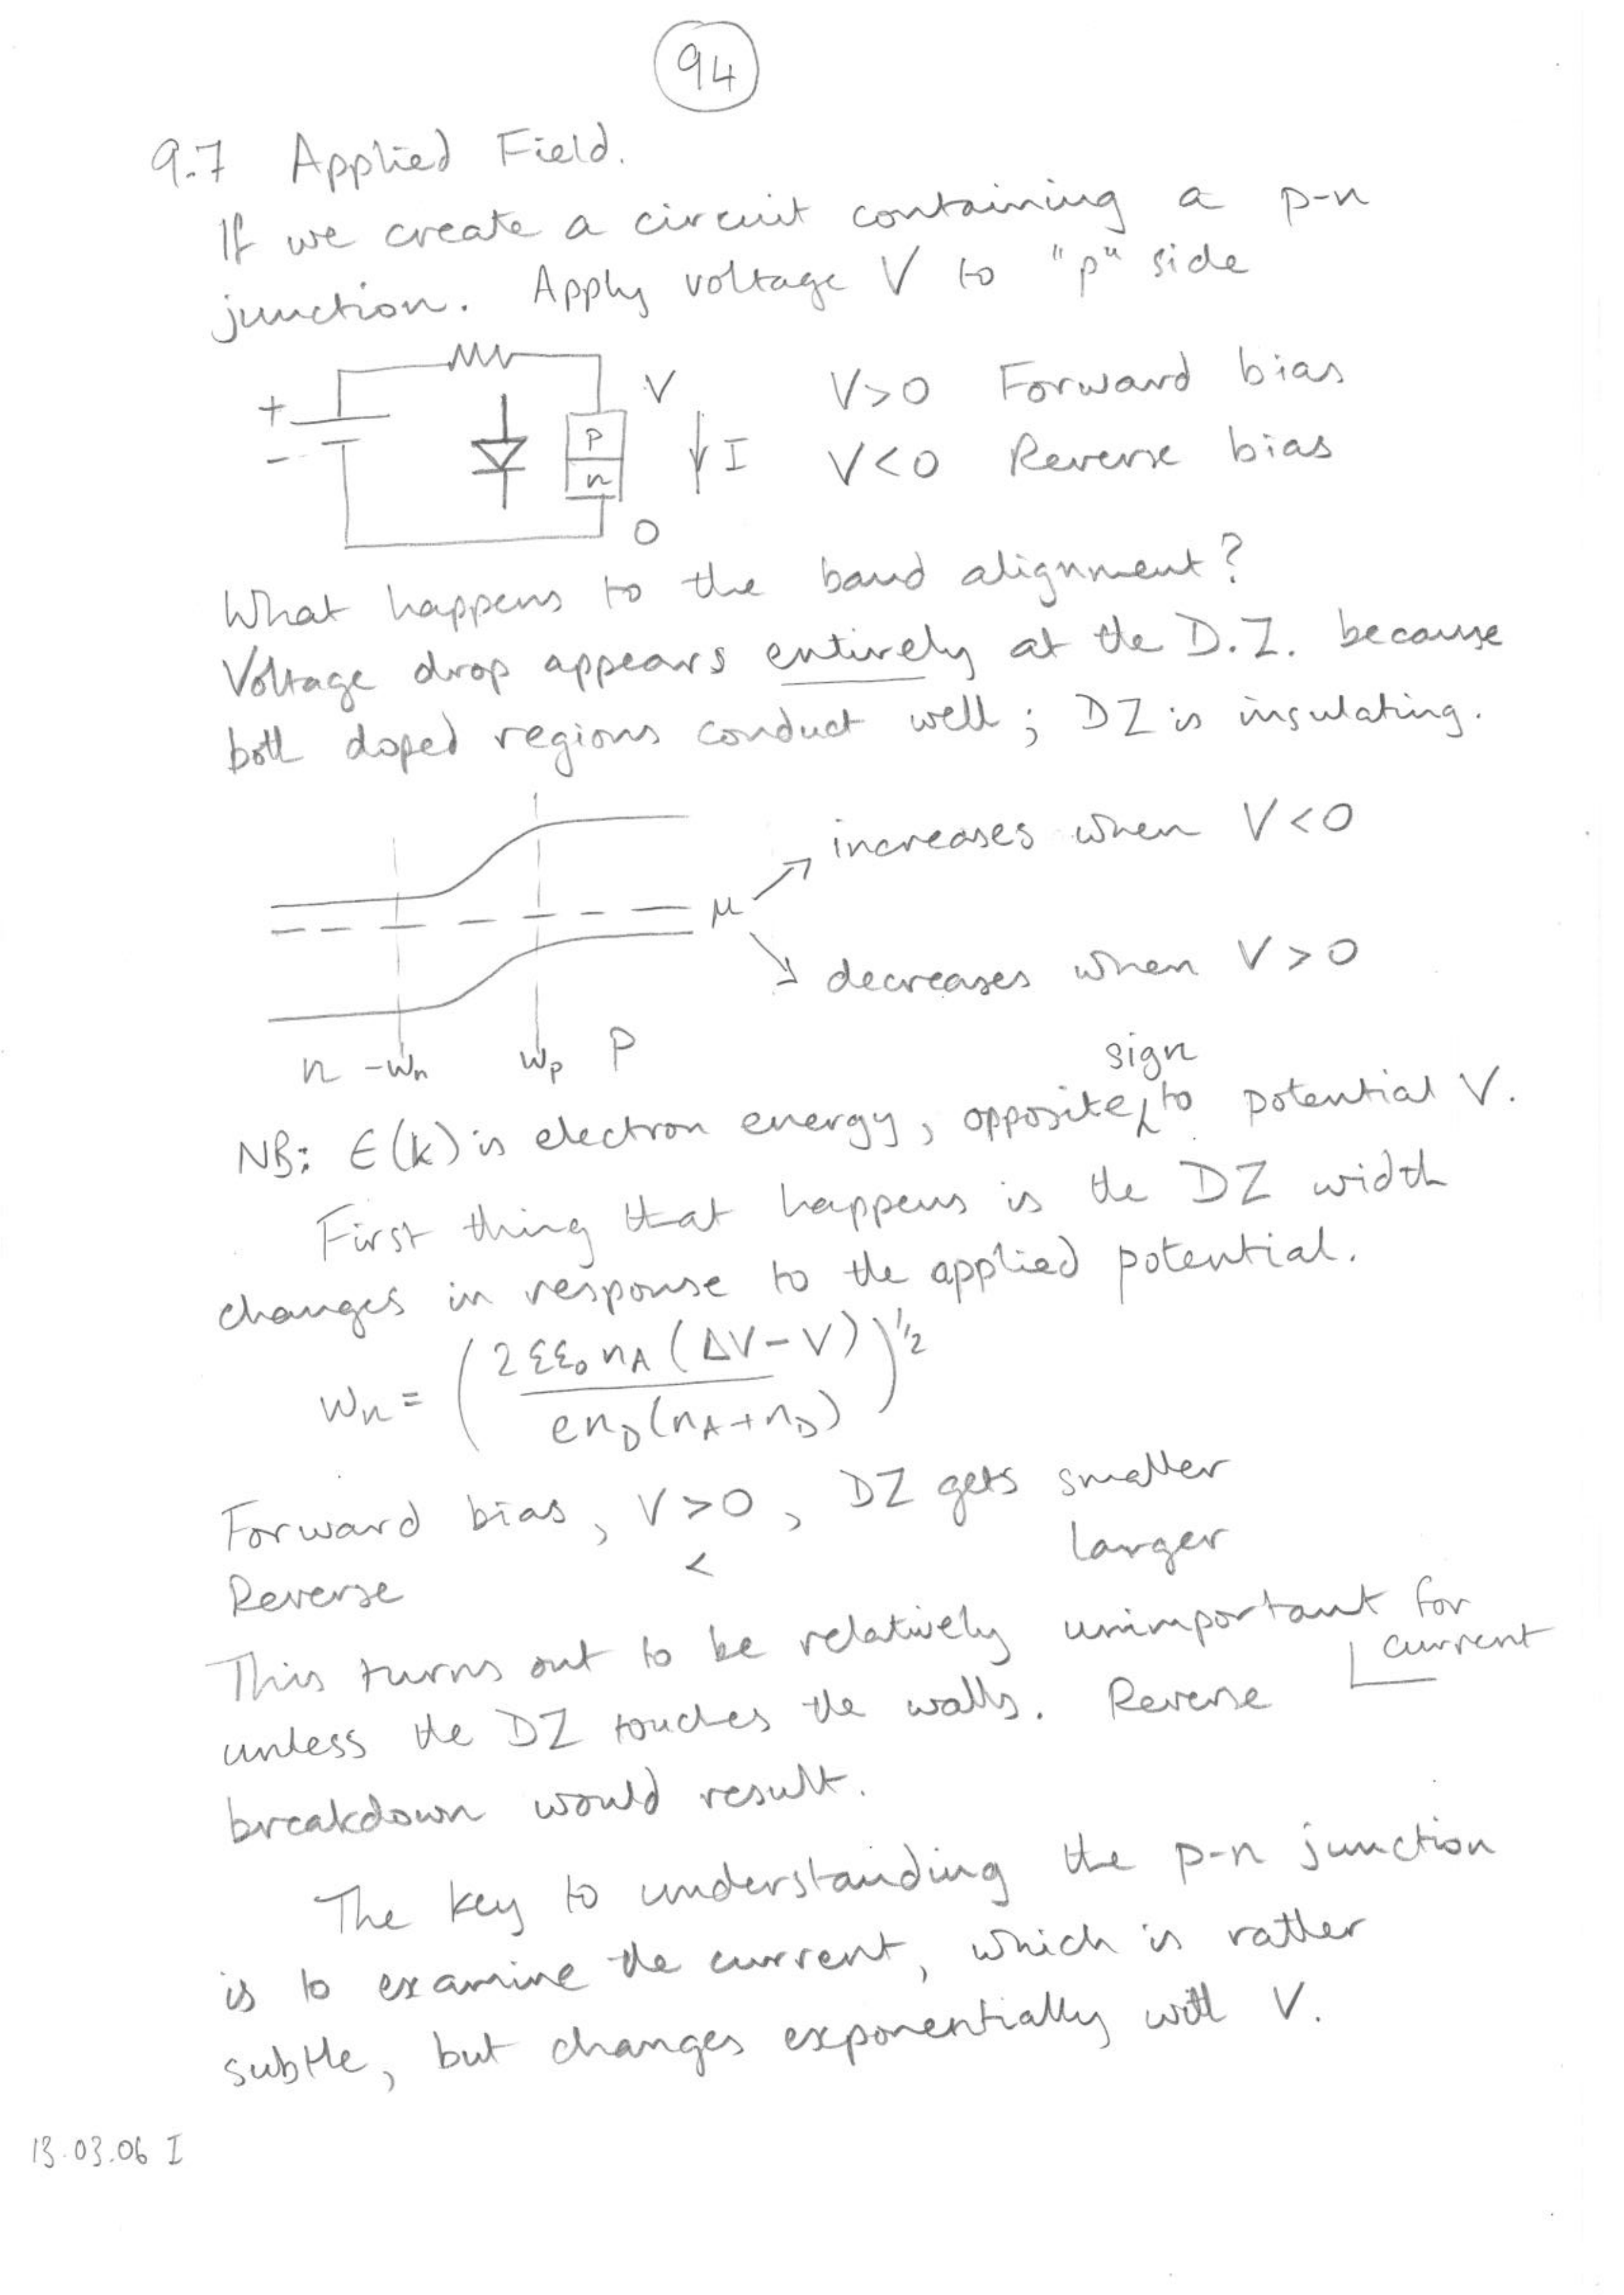 94
9.7 Applied Field.
If we create a circuit containing a p-n
junction. Apply voltage V to "p" side
+ V V>0 Forward bias
- p n I V<0 Reverse bias
0
What happens to the band alignment?
Voltage drop appears entirely at the D.Z. because
both doped regions conduct well; DZ is insulating.
increases when V<0
μ
decreases when V>0
n -wn wp P
NB: ϵ(k) is electron energy, opposite sign to potential V.
First thing that happens is the DZ width
changes in response to the applied potential.
wn = (2εε₀nA(ΔV-V) / enD(nA+nD))^½
Forward bias, V>0, DZ gets smaller
Reverse < larger
This turns out to be relatively unimportant for current
unless the DZ touches the walls. Reverse
breakdown would result.
The key to understanding the p-n junction
is to examine the current, which is rather
subtle, but changes exponentially with V.
13.03.06 I